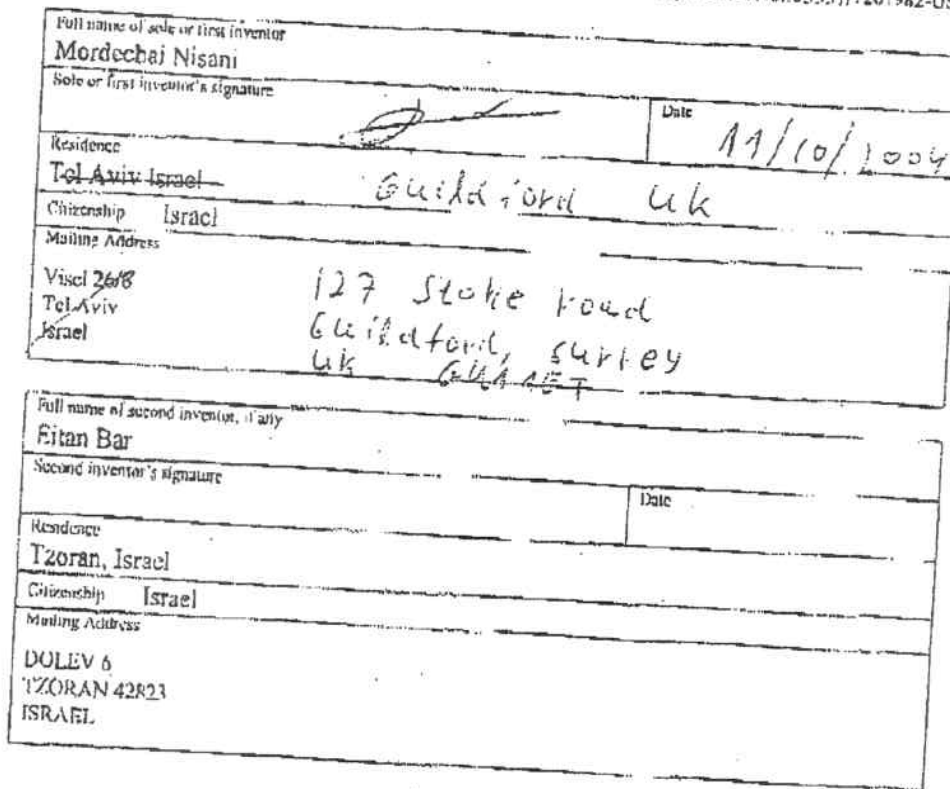 Full name of sole or first inventor
Mordechai Nisani
Sole or first inventor's signature
Date
11/10/2004
Residence
Tel Aviv Israel
Guildford UK
Citizenship Israel
Mailing Address
Visel 26/8
Tel Aviv
Israel
127 Stoke road
Guildford, Surrey
UK GU1 1ET
Full name of second inventor, if any
Eitan Bar
Second inventor's signature
Date
Residence
Tzoran, Israel
Citizenship Israel
Mailing Address
DOLEV 6
TZORAN 42823
ISRAEL